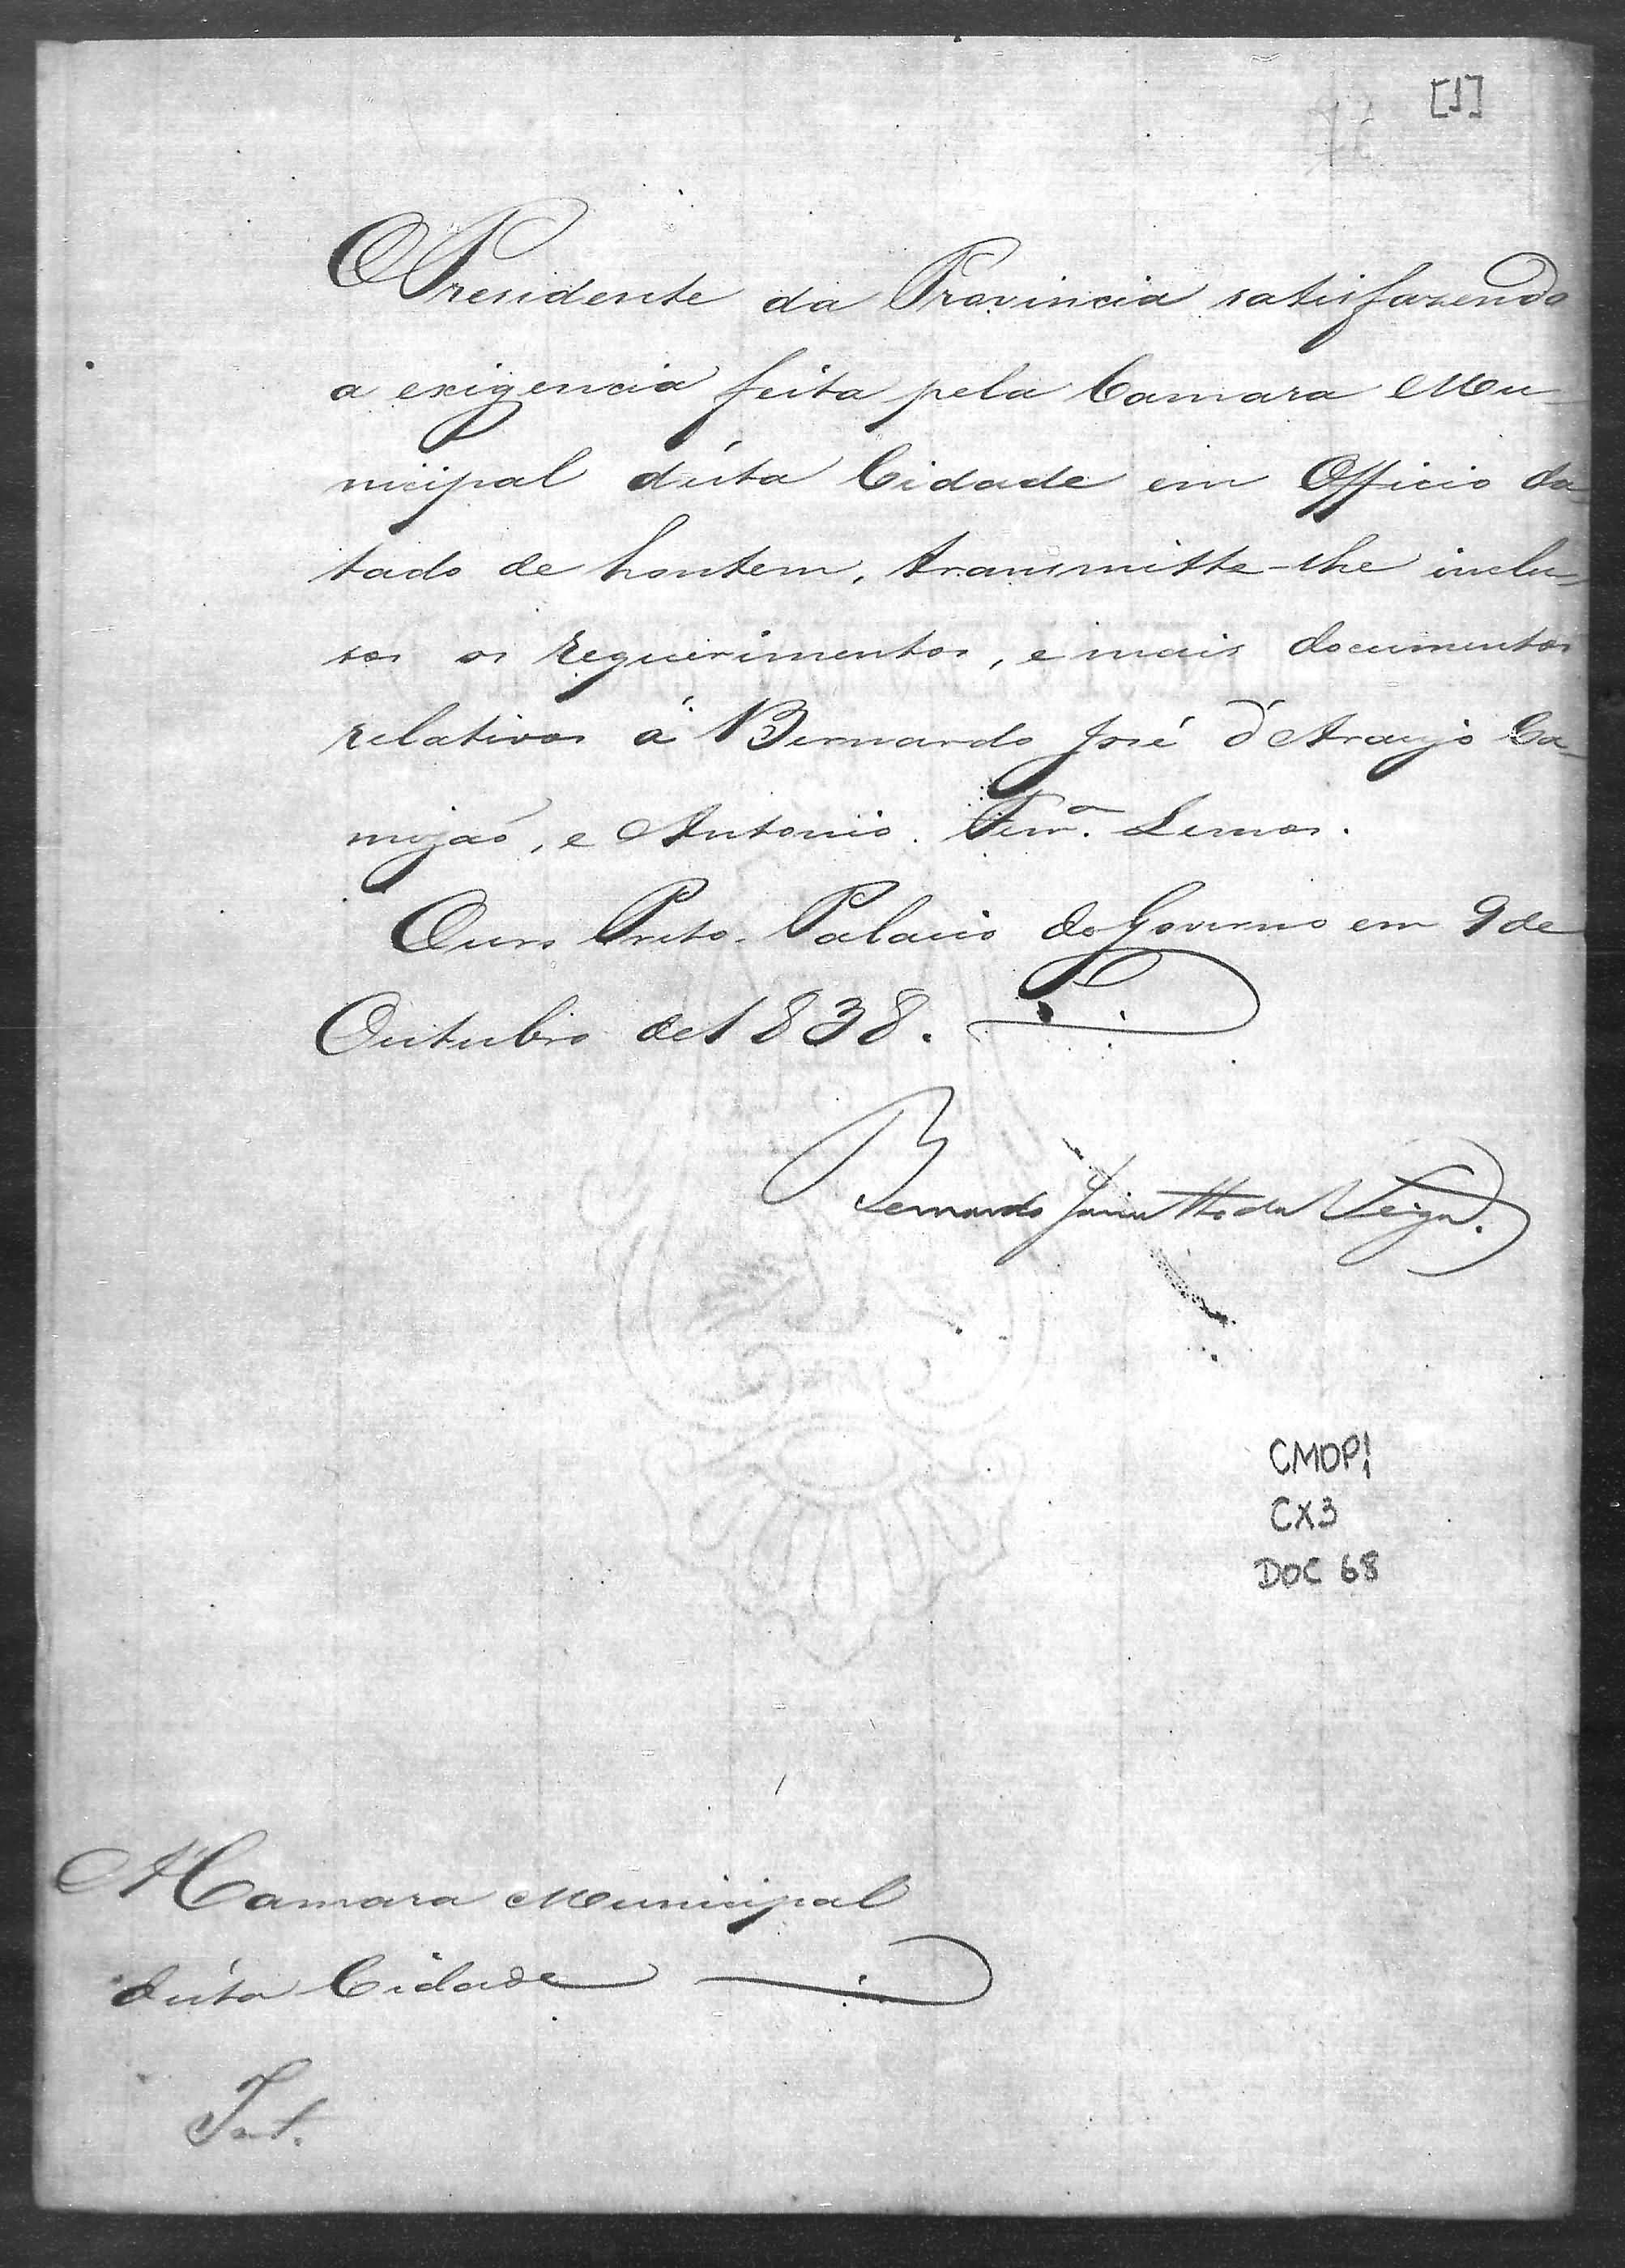 [1]
O Presidente da Provincia satisfazendo
a exigencia feita pela Camara Mu-
nicipal d'esta Cidade em Officio da-
tado de hontem, transmitte-lhe inclu-
sos os requerimentos, e mais documentos
relativos á Bernardo José d'Araujo Ca-
mojão, e Antonio Ferrª. Lemos.
Ouro Preto. Palacio do Governo em 9 de
Outubro de 1838.
Bernardo Jacinto da Veiga.
CMOP1
CX3
DOC 68
A' Camara Municipal
d'esta Cidade